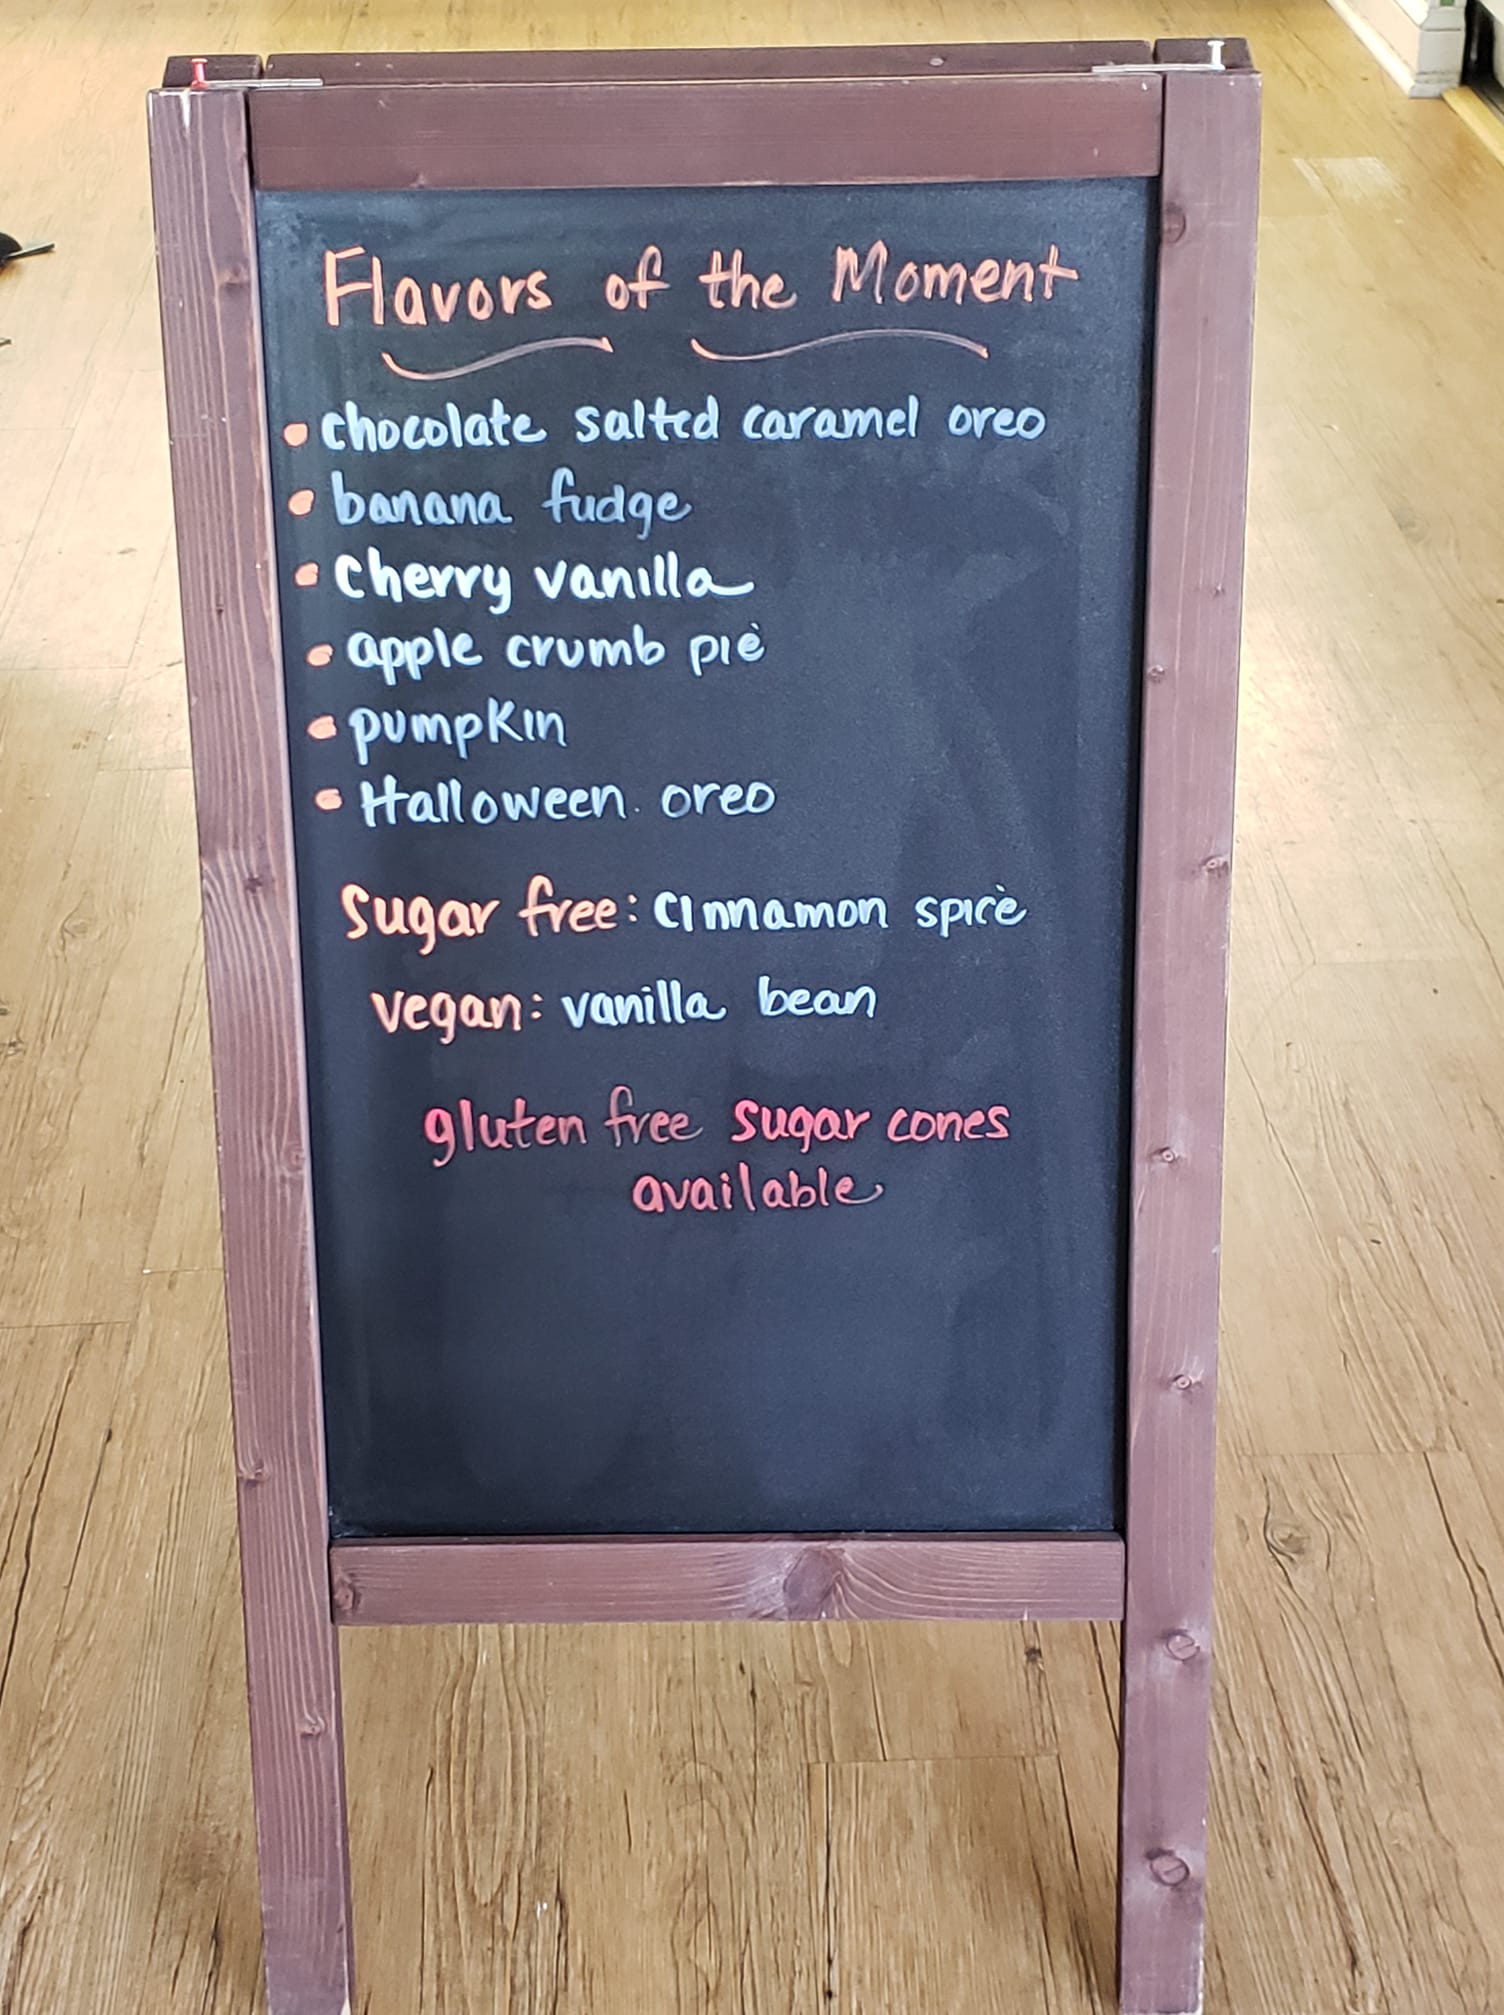 Flavors of the Moment
• chocolate salted caramel oreo
• banana fudge
• cherry vanilla
• apple crumb pie
• pumpkin
• Halloween oreo
sugar free: cinnamon spice
vegan: vanilla bean
gluten free sugar cones
available